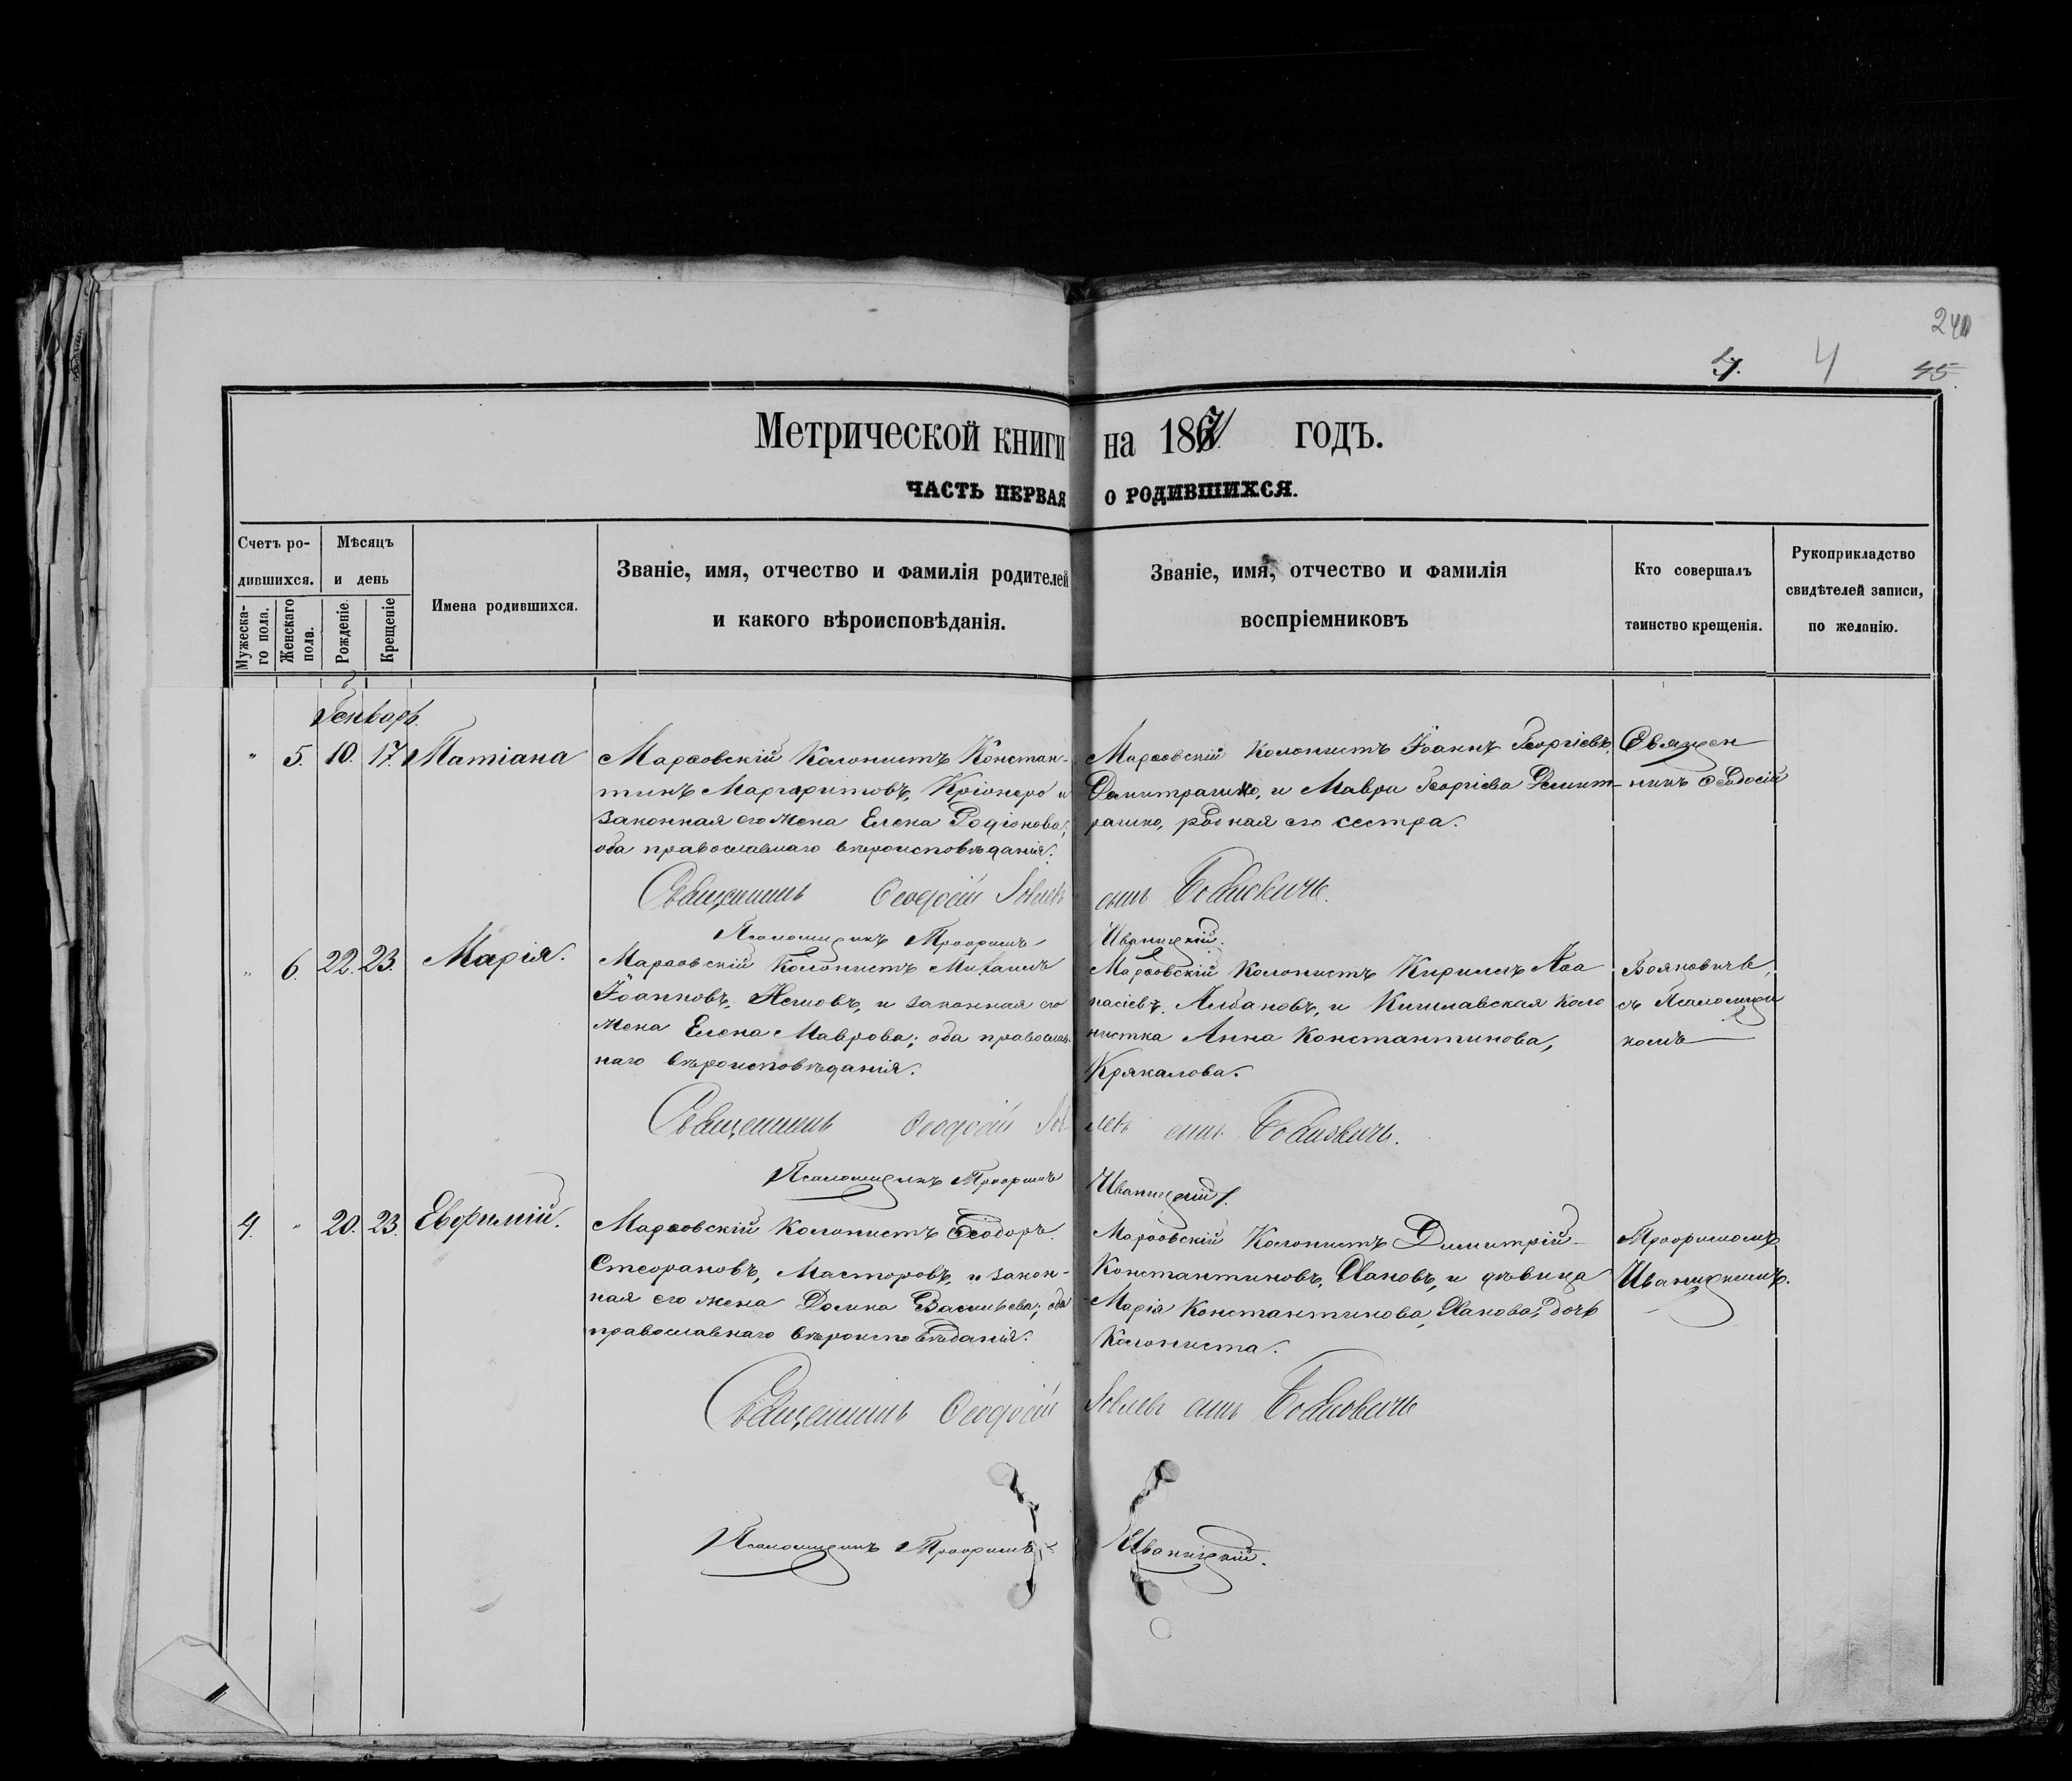 240
4. 4 45.
Метрической книги на 1867 годъ.
ЧАСТЬ ПЕРВАЯ О РОДИВШИХСЯ.
Счетъ ро-
дившихся.
Мѣсяцъ
и день
Мужеска-
го пола.
Женскаго
пола.
Рожденіе.
Крещеніе
Имена родившихся.
Званіе, имя, отчество и фамилія родителей
и какого вѣроисповѣданія.
Званіе, имя, отчество и фамилія
воспріемниковъ
Кто совершалъ
таинство крещенія.
Рукоприкладство
свидѣтелей записи,
по желанію.
Генварь.
" 5. 10. 17. Татіана
Марфовскій Колонистъ Констан-
тинъ Маргаритовъ, и
законная его жена Елена Родіонова;
оба православнаго вѣроисповѣданія.
Марфовскій колонистъ Іоаннъ Георгіевъ,
и Мавра Георгіева Демит-
рашко, родная его сестра.
Священ
никъ Ѳеодосій
Священникъ Ѳеодосій Іовлевъ сынъ Бояновичъ.
Псаломщикъ Трофимъ Иваницкій.
" 6. 22. 23. Марія.
Марфовскій Колонистъ Михаилъ
Іоанновъ, и законная его
жена Елена Маврова; оба православ-
наго вѣроисповѣданія.
Марфовскій колонистъ Кириллъ Аѳа
насіевъ, Албановъ, и Кишлавская коло
нистка Анна Константинова,
Крякалова.
Бояновичъ
съ Псаломщи
комъ
Священникъ Ѳеодосій Іовлевъ сынъ Бояновичъ.
Псаломщикъ Трофимъ Иваницкій.
4. " 20. 23. Евфимій.
Марфовскій Колонистъ Ѳеодоръ
Стефановъ, Масторовъ, и закон-
ная его жена Домна Васильева; оба
православнаго вѣроисповѣданія.
Марфовскій Колонистъ Димитрій
Константиновъ, и дѣвица
Марія Константинова, дочь
Колониста.
Трофимомъ
Иваницкимъ.
Священникъ Ѳеодосій Іовлевъ сынъ Бояновичъ
Псаломщикъ Трофимъ Иваницкій.